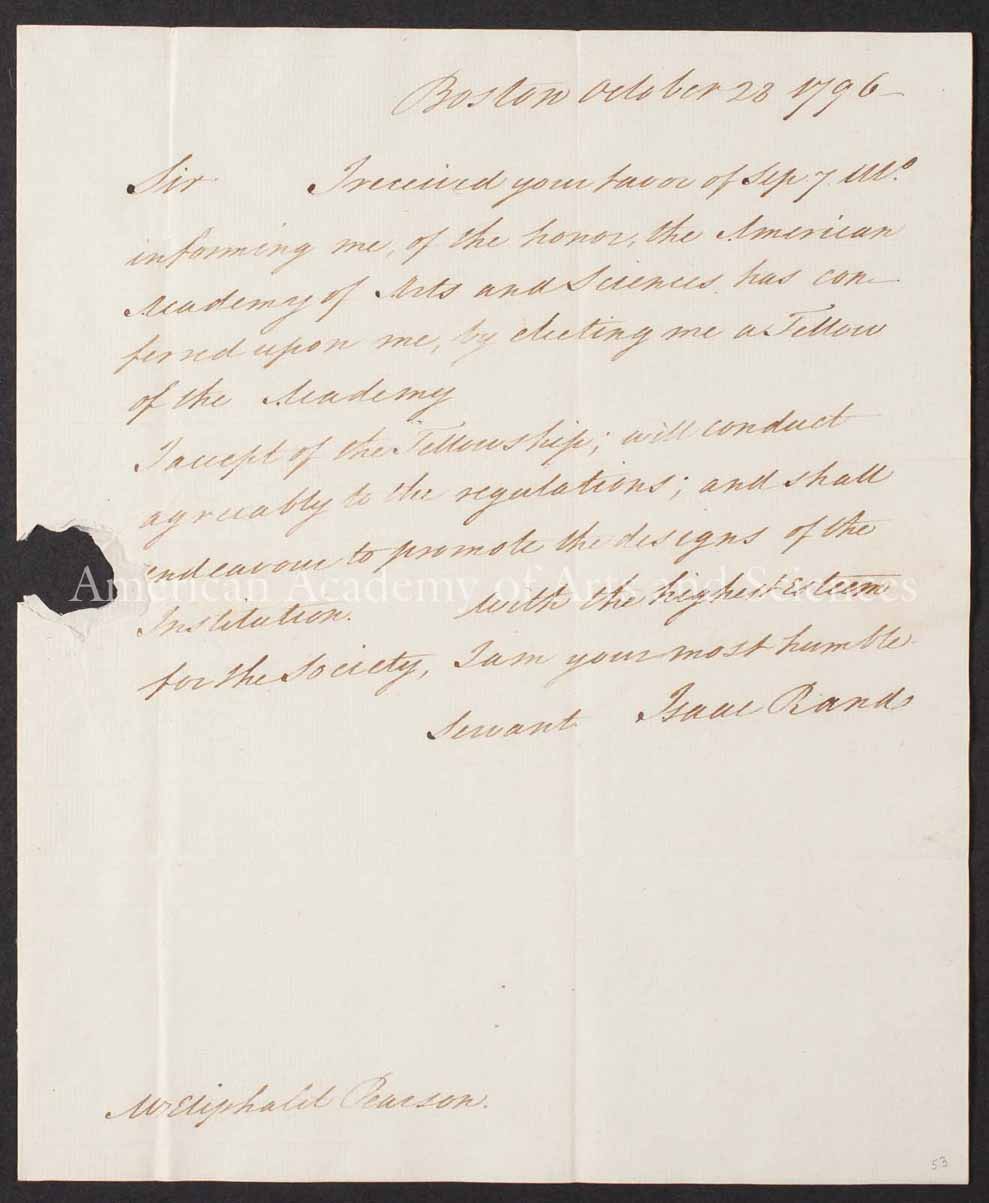 Boston October 28 1796
Sir I received your favor of Sep 7. Ulto
informing me, of the honor, the American
Academy of Arts and Sciences has con-
ferred upon me, by electing me a Fellow
of the Academy
I accept of the Fellowship; will conduct
agreeably to the regulations; and shall
endeavour to promote the designs of the
American Academy of Arts and Sciences
Institution. With the highest Esteem
for the Society, I am your most humble
Servant Isaac Rand
Mr Eliphalet Pearson.
53